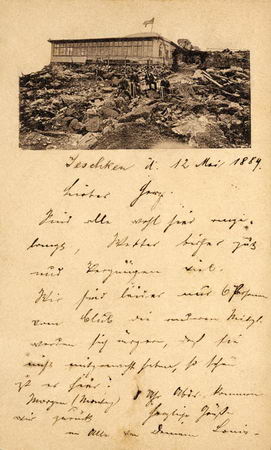 Jeschken d. 12 Mai 1889.
Lieber Georg.
Sind alle wohl hier ange-
langt, Wetter bisher gut
und Vergnügen viel.
Wir sind leider nur 6 Personen
vom Club die anderen Mitgl.
werden sich ärgern, daß sie
nicht mitgemacht haben, so schön
ist es hier.
Morgen (Montag) 8 Uhr Abds. kommen
wir zurück herzliche Grüße
an Alle von Deinem Louis.